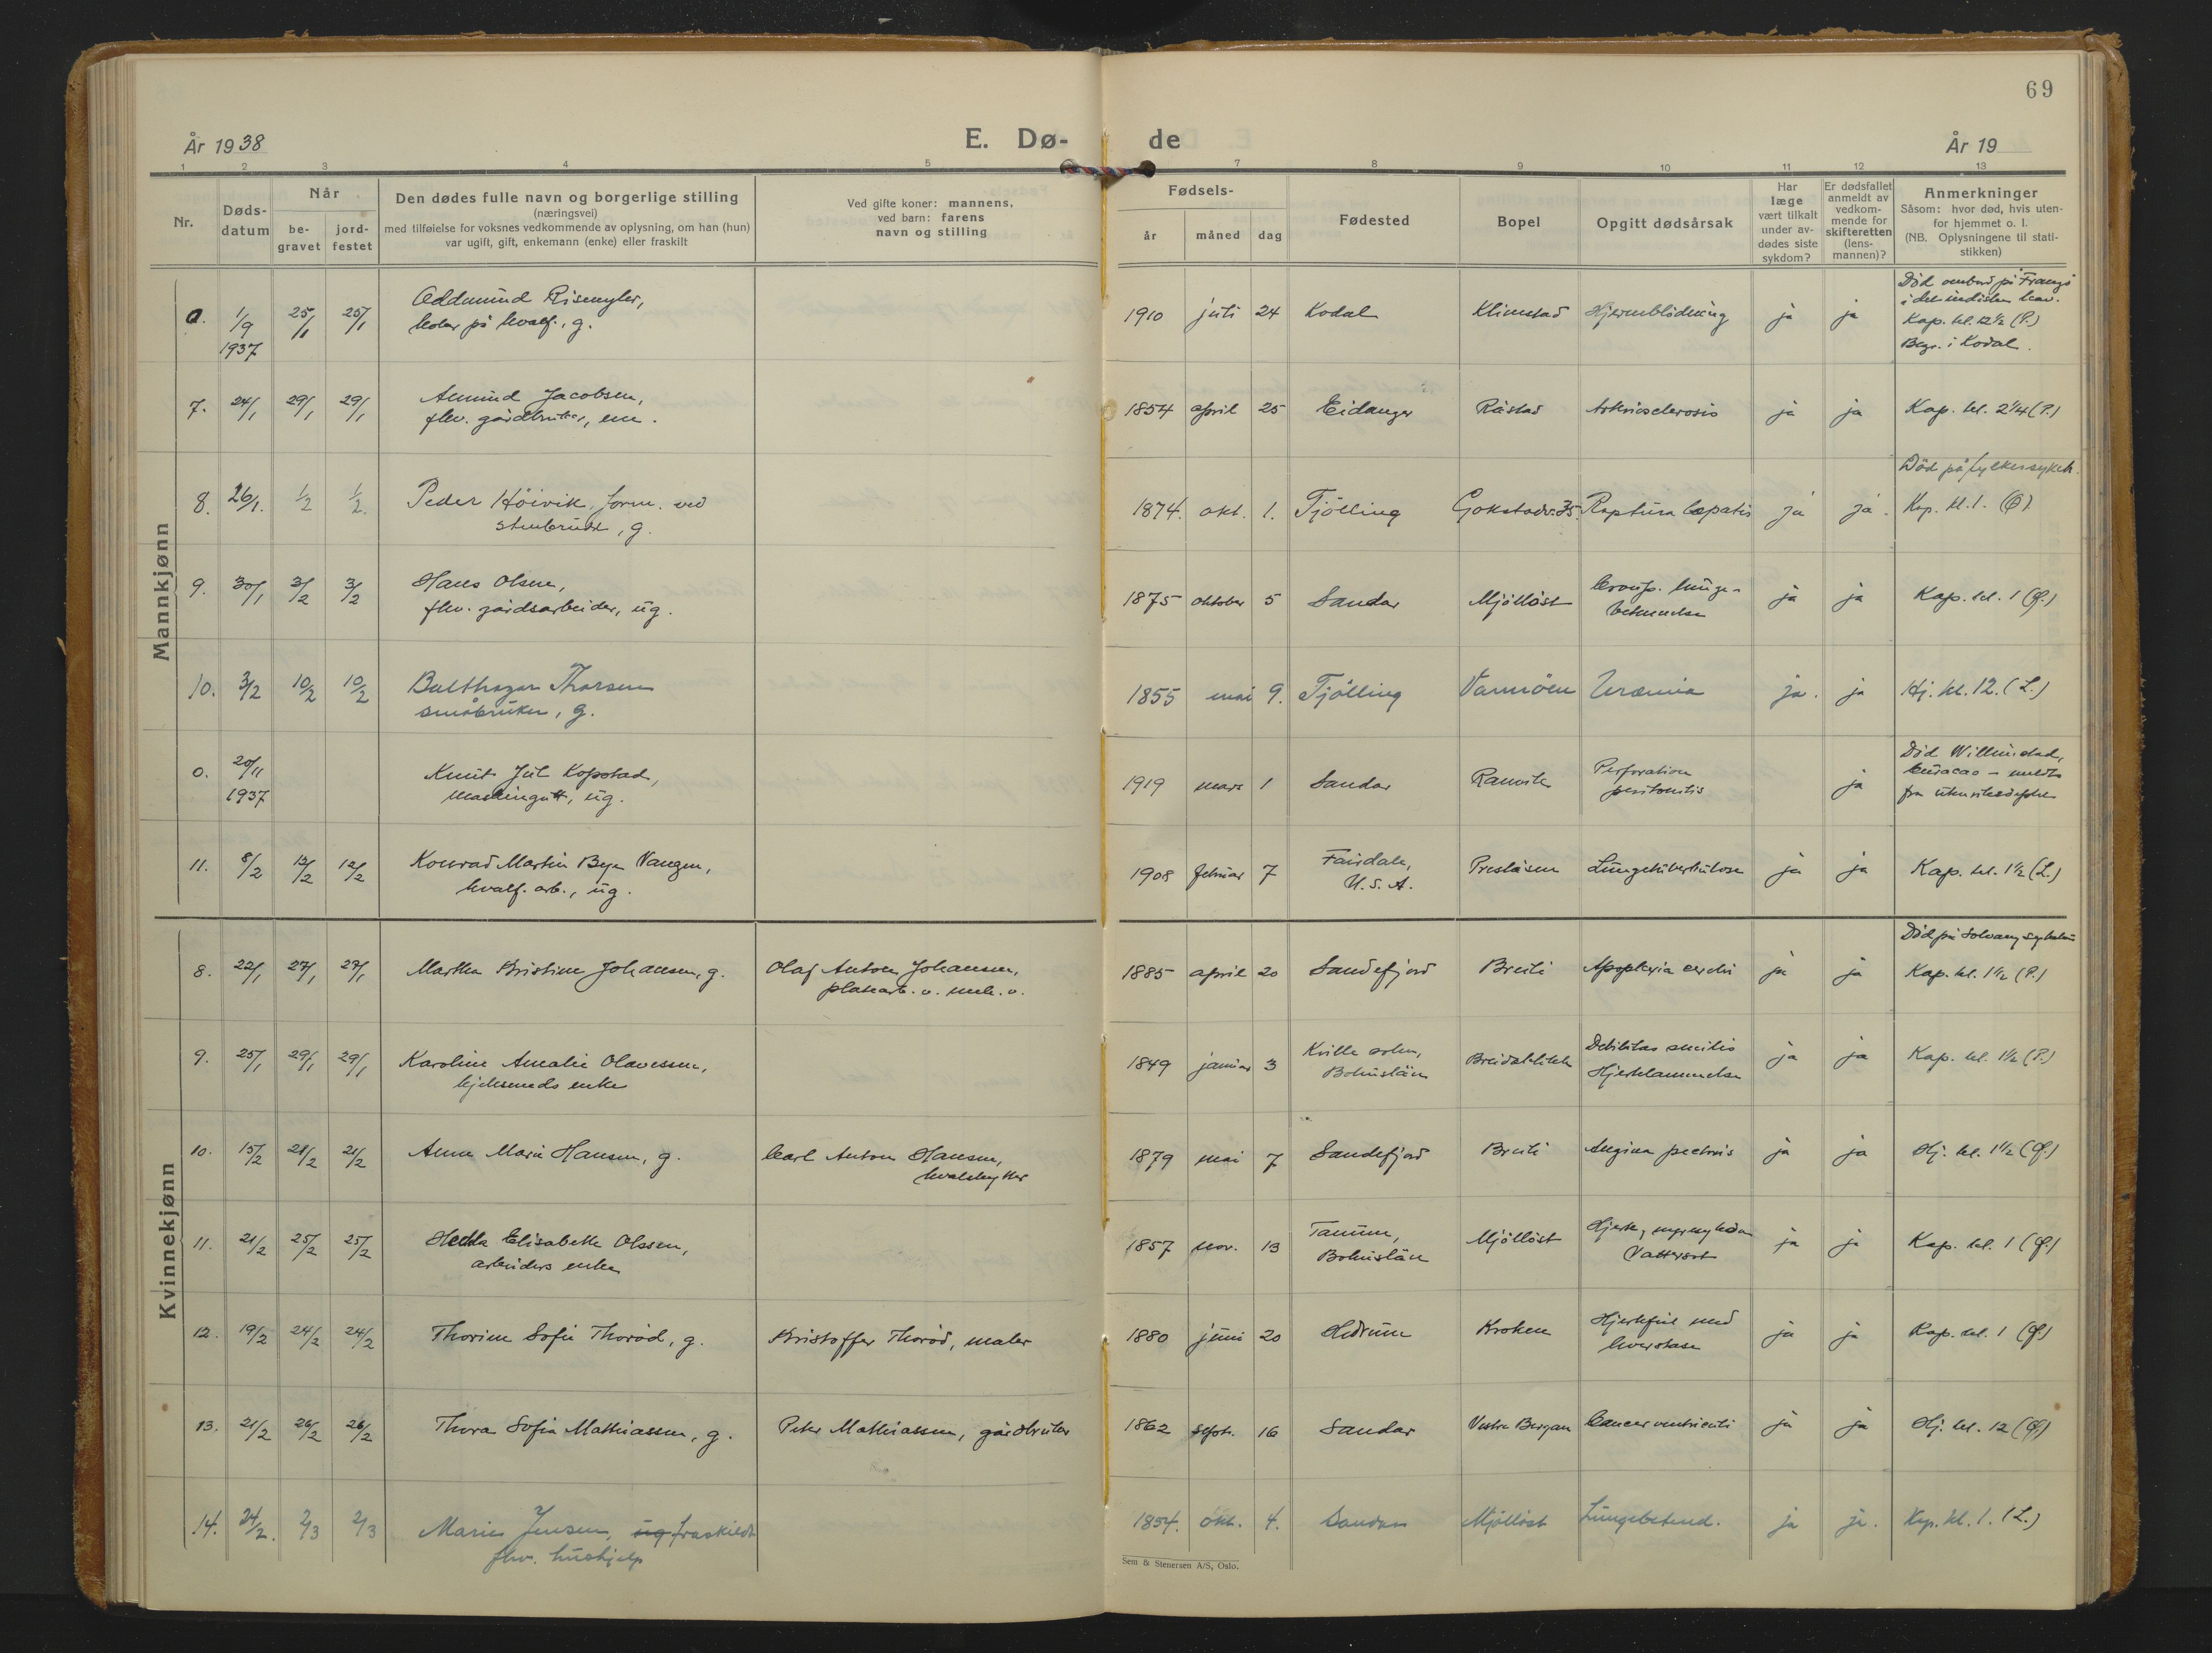 69
År 1938
E. Dø-
de
År 19
1 2 3 4 5 7 8 9 10 11 12 13
Nr.
Døds-
datum
Når
be-
gravet
jord-
festet
Den dødes fulle navn og borgerlige stilling
(næringsvei)
med tilføielse for voksnes vedkommende av oplysning, om han (hun)
var ugift, gift, enkemann (enke) eller fraskilt
Ved gifte koner: mannens,
ved barn: farens
navn og stilling
Fødsels-
år måned dag
Fødested
Bopel
Opgitt dødsårsak
Har
læge
vært tilkalt
under av-
dødes siste
sykdom?
Er dødsfallet
anmeldt av
vedkom-
mende for
skifteretten
(lens-
mannen)?
Anmerkninger
Såsom: hvor død, hvis uten-
for hjemmet o. l.
(NB. Oplysningene til stati-
stikken)
Mannkjønn
0. 1/9 25/1 25/1 Oddmund
1937
på hvalf., g.
1910 juli 24 Kodal Klimstad Hjerneblödning ja ja
Död ombord på
i det indiske hav.
Kap. kl. 12½ (P.)
Begr. i Kodal.
7. 24/1 29/1 29/1 Amund Jacobsen,
fhv. gårdbruker, em.
1854 april 25 Eidanger Råstad Arteriosclerosis ja ja Kap. kl. 2¼ (P.)
8. 26/1. 1/2 1/2. Peder Höivik, form. ved
stenbrudd, g.
1874. okt. 1. Tjölling Gokstadv. 35. Ruptura hepatis ja ja.
Död på fylkessykeh.
Kap. kl. 1.
9. 30/1 3/2 3/2 Hans Olsen,
fhv. gårdsarbeider, ug.
1875 oktober 5 Sandar Mjöllöst Croup. lunge-
betennelse
ja ja Kap. kl. 1 (Q.)
10. 3/2 10/2 10/2 Balthazar Thorsen
småbruker, g.
1855 mai 9. Tjölling Uræmia ja. ja Hj. kl. 12. (L.)
0. 20/11
1937
Knut Jul Kopstad,
maskingutt, ug.
1919 mars 1 Sandar Ranvik Perforation
peritonitis
ja
Död Willemstad,
Curacao - meldt
fra
11. 8/2 12/2 12/2 Konrad Martin Bye Vangen,
hvalf. arb., ug.
1908 februar 7 Fairdale,
U. S. A.
Preståsen Lungetuberkulose ja ja Kap. kl. 1½ (L.)
Kvinnekjønn
8. 22/1 27/1 27/1 Martha Kristine Johansen, g.
Olaf Anton Johansen,
platearb. v. mek. v.
1885 april 20 Sandefjord Breili Apoplexia cerebri ja ja
Död på Solvang sykehus
Kap. kl. 1½ (P.)
9. 25/1 29/1 29/1 Karoline Amalie Olavesen,
kjelsmeds enke
1849 januar 3 Kville sokn,
Bohuslän
Debilitas senilis
Hjertelammelse
ja ja Kap. kl. 1½ (P.)
10. 15/2 21/2 21/2 Anna Marie Hansen, g.
Carl Anton Hansen,
hvalskytter
1879 mai 7 Sandefjord Breili Angina pectoris ja ja Hj. kl. 1½ (Q.)
11. 21/2 25/2 25/2 Hedda Elisabeth Olssen,
arbeiders enke
1857 nov. 13 Tanum,
Bohuslän
Mjöllöst
Vattersot
ja ja Kap. kl. 1 (Q.)
12. 19/2 24/2 24/2 Thorine Sofie Thoröd, g.
Kristoffer Thoröd, maler
1880 juni 20 Hedrum Kroken Hjertefeil med
ja ja Kap. kl. 1 (Q.)
13. 21/2 26/2 26/2 Thora Sofie Mathiassen, g.
Peter Mathiassen, gårdbruker
1862 sept. 16 Sandar Vestre Bergan Cancer ventriculi ja ja Hj. kl. 12 (Q.)
14. 24/2. 2/3 2/3 Marie Jensen, ug fraskildt
fhv. hushjelp
1854. okt. 4. Sandar Mjöllöst Lungebetend. ja ja. Kap. kl. 1. (L.)
Sem & Stenersen A/S, Oslo.